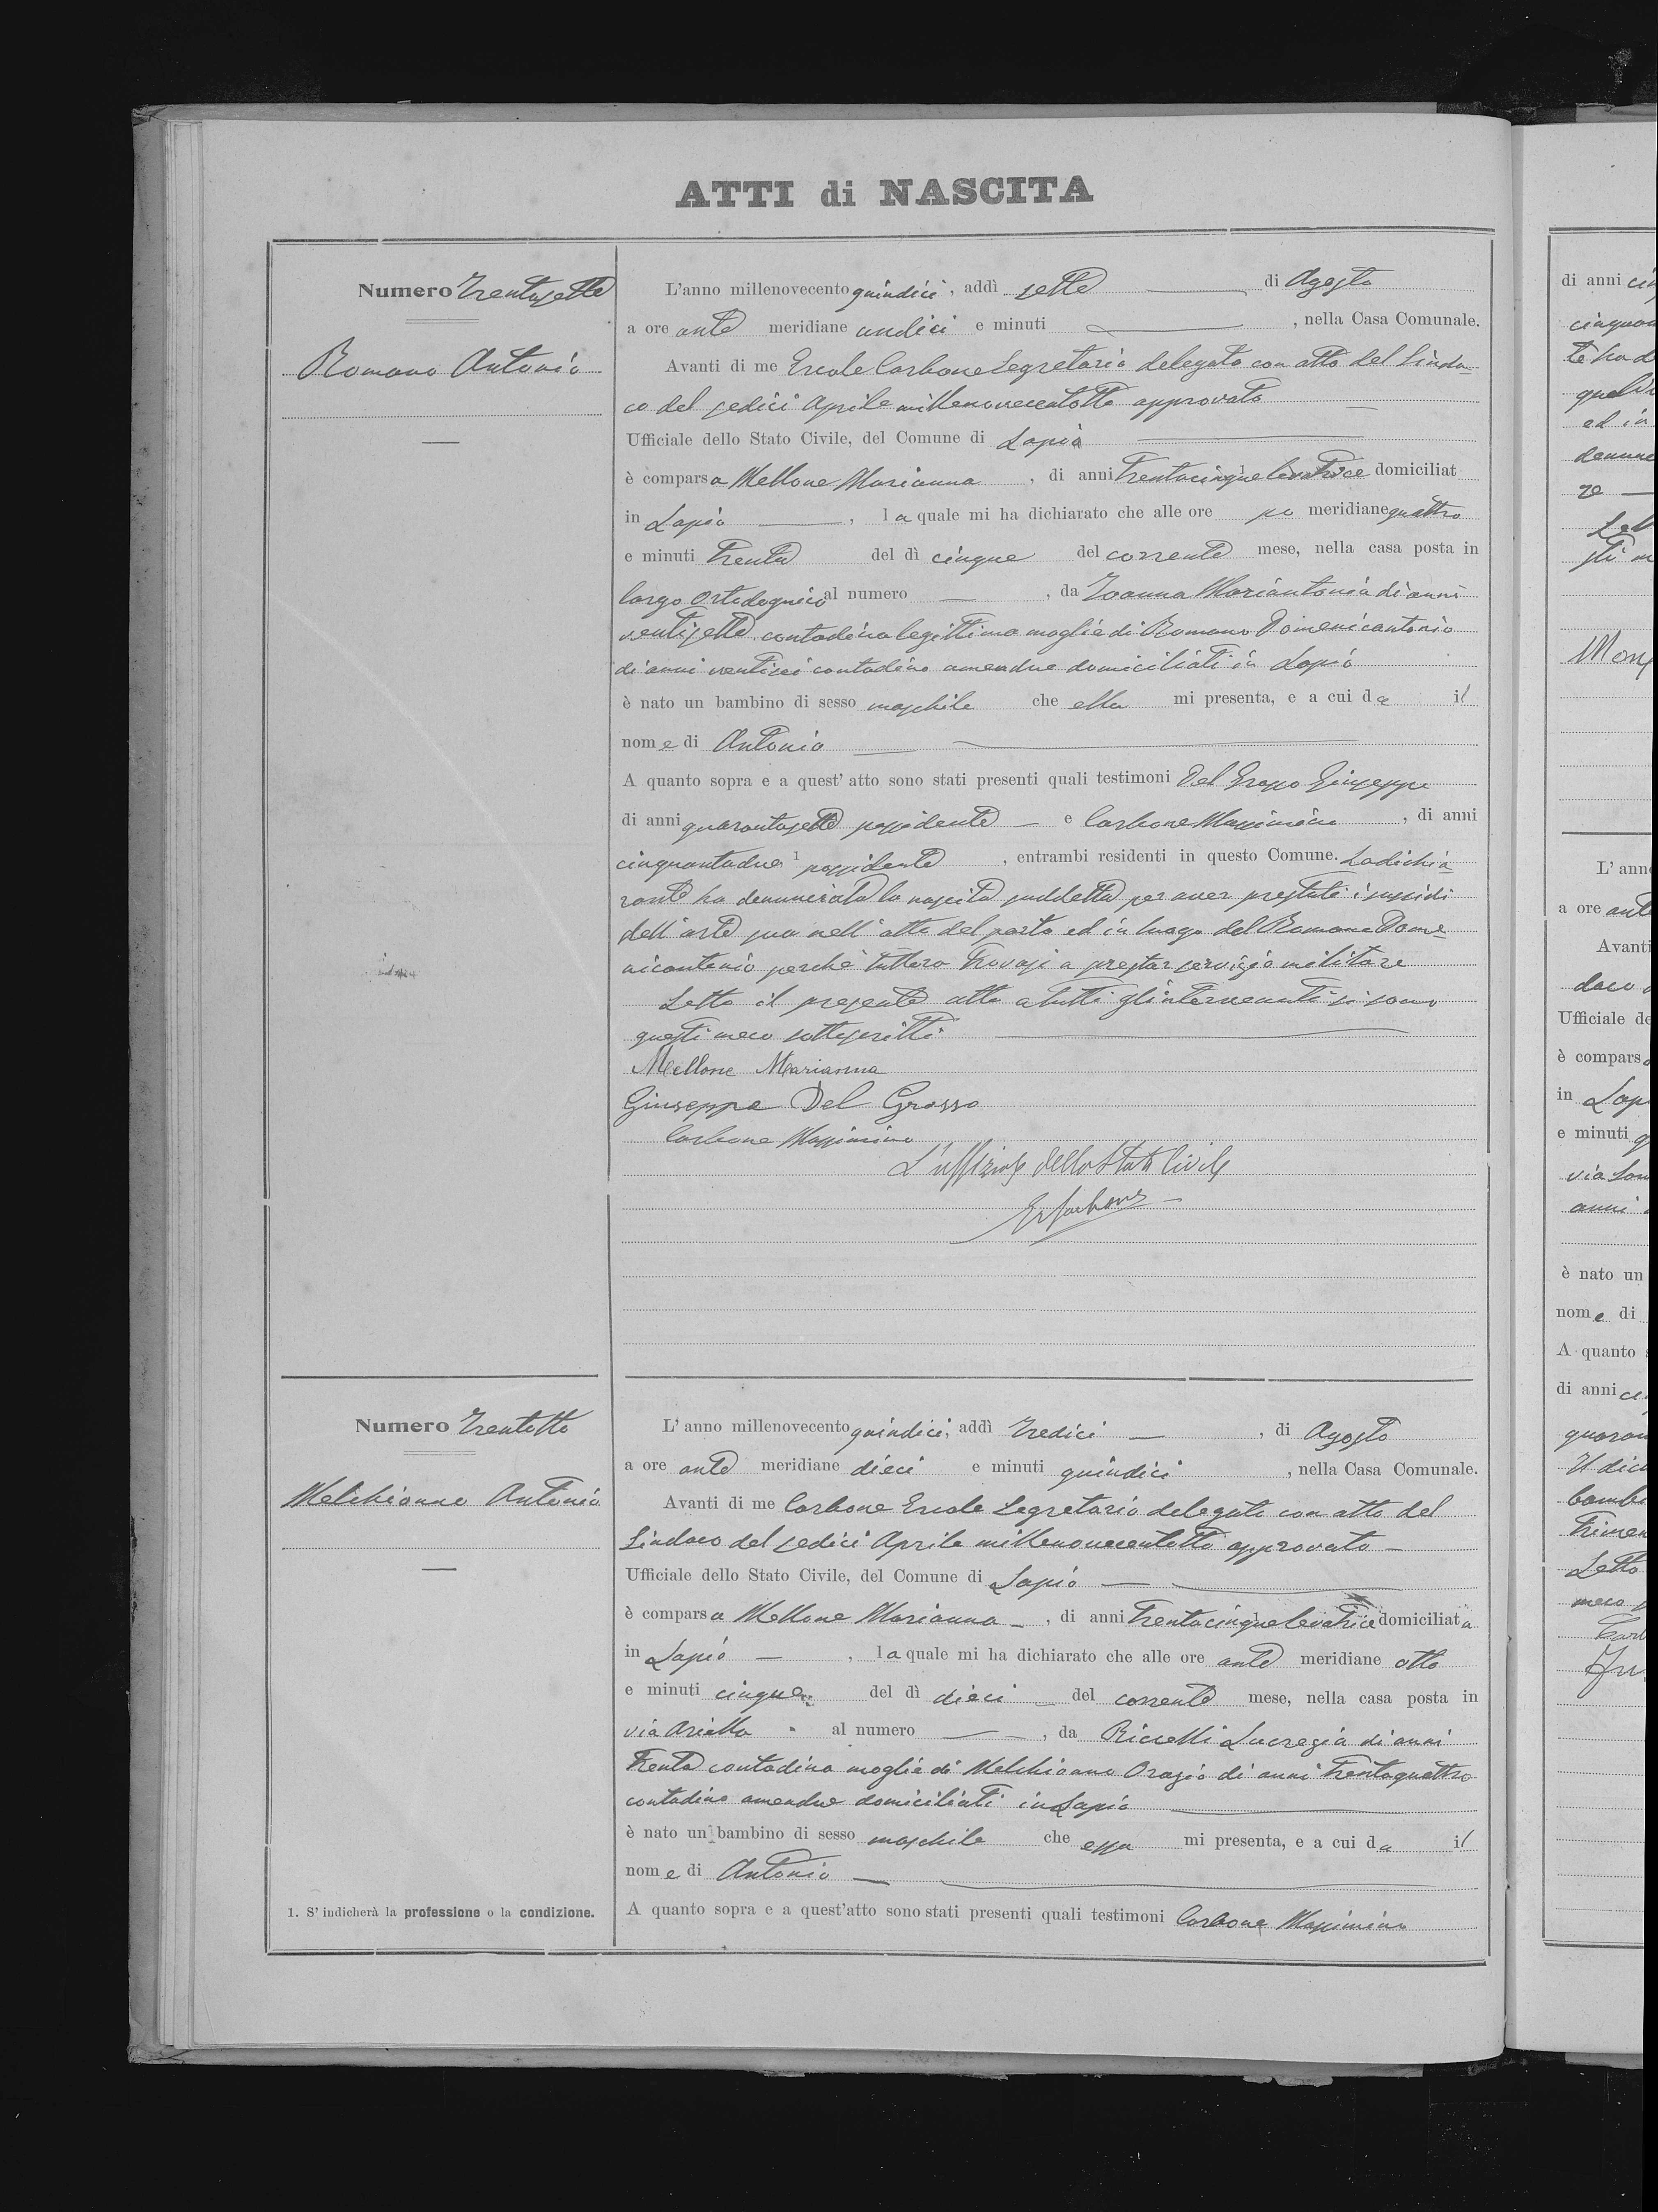 ATTI di NASCITA
Numero Trentasette
Romano Antonio
L'anno millenovecento quindici, addì sette di Agosto
a ore ante meridiane undici e minuti — , nella Casa Comunale.
Avanti di me Ercole Carbone Segretario delegato con atto del Sinda-
co del sedici Aprile millenovecentotto approvato —
Ufficiale dello Stato Civile, del Comune di Lapio
è comparsa Mellone Marianna , di anni trentacinque levatrice domiciliat
in Lapio — , la quale mi ha dichiarato che alle ore po meridiane quattro
e minuti trenta del dì cinque del corrente mese, nella casa posta in
largo al numero — , da Joanna Mariantonia di anni
ventisette contadina legittima moglie di Romano Domenicantonio
di anni ventisei contadino amendue domiciliati in Lapio
è nato un bambino di sesso maschile che ella mi presenta, e a cui da il
nome di Antonio —
A quanto sopra e a quest' atto sono stati presenti quali testimoni Del Grosso Giuseppe
di anni quarantasette possidente — e Carbone Massimino , di anni
cinquantadue 1 possidente , entrambi residenti in questo Comune. La dichia-
rante ha denunciata la nascita suddetta per aver prestati i sussidi
dell'arte sua nell'atto del parto ed in luogo del Romano Dome-
nicantonio perchè tuttora trovasi a prestar servizio militare
Letto il presente atto a tutti gl'intervenuti si sono
questi meco sottoscritti.
Mellone Marianna
Giuseppe Del Grosso
Carbone Massimino
L'uffiziale dello Stato Civile
Er Carbone
Numero Trentotto
Melchionno Antonio
L'anno millenovecento quindici, addì tredici — , di Agosto
a ore ante meridiane dieci e minuti quindici , nella Casa Comunale.
Avanti di me Carbone Ercole Segretario delegato con atto del
Sindaco del sedici Aprile millenovecentotto approvato —
Ufficiale dello Stato Civile, del Comune di Lapio —
è comparsa Mellone Marianna — , di anni trentacinque levatrice domiciliata
in Lapio — , la quale mi ha dichiarato che alle ore ante meridiane otto
e minuti cinque del dì dieci — del corrente mese, nella casa posta in
via Ariella al numero — , da Riccelli Lucrezia di anni
trenta contadina moglie di Melchionno Orazio di anni trentaquattro
contadino amendue domiciliati in Lapio
è nato un bambino di sesso maschile che essa mi presenta, e a cui da il
nome di Antonio —
1. S' indicherà la professione o la condizione.
A quanto sopra e a quest'atto sono stati presenti quali testimoni Carbone Massimino
di anni
ed in
L' anno
a ore ante
Avanti
Ufficiale de
è compars
in Lapi
e minuti
via
anni
è nato un
nome di
A quanto
di anni
Letto
meco